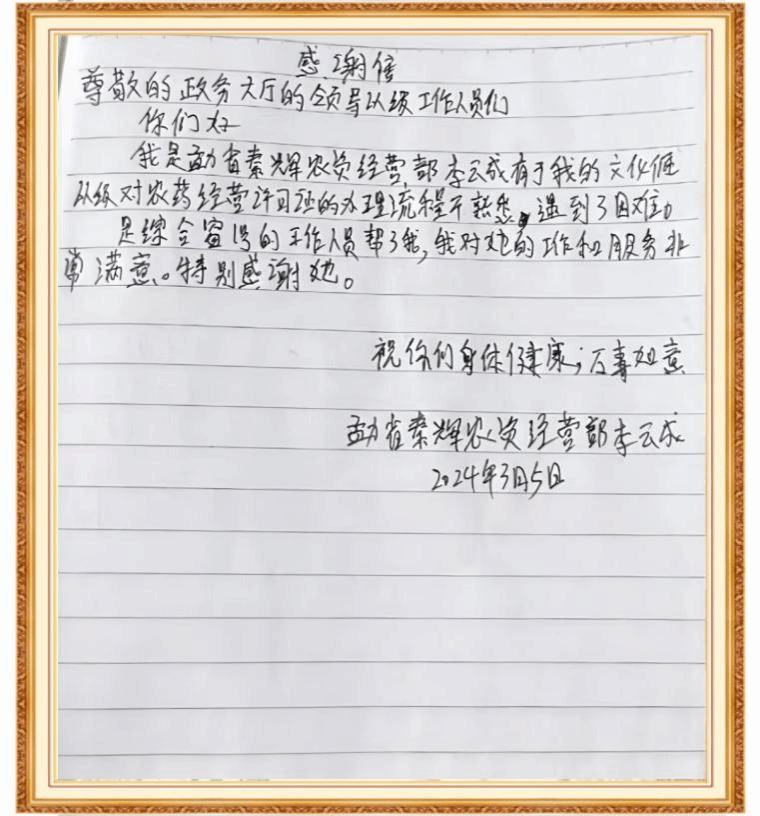 感谢信
尊敬的政务大厅的领导以级工作人员们
你们好
我是勐省秦辉农资经营部李云成有于我的文化低
从级对农药经营许可证的办理流程不熟悉，遇到了困难。
是综合窗口的工作人员帮了我，我对她的工作和服务非
常满意。特别感谢她。
祝你们身体健康；万事如意
勐省秦辉农资经营部李云成
2024年3月5日